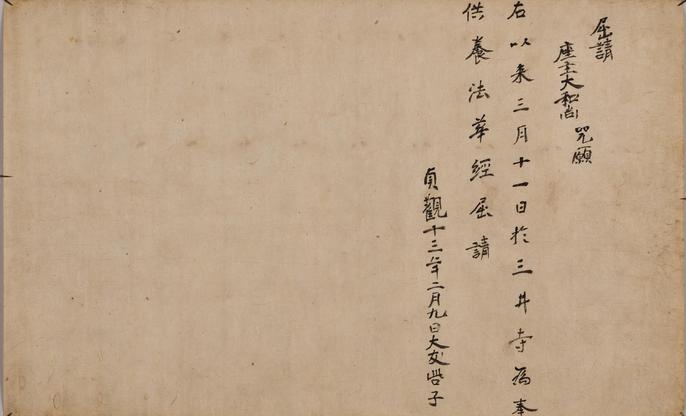 屈請
座主大和尚 咒願
右以来三月十一日於三井寺為奉
供養法華經屈請
貞觀十三年二月九日大友 子